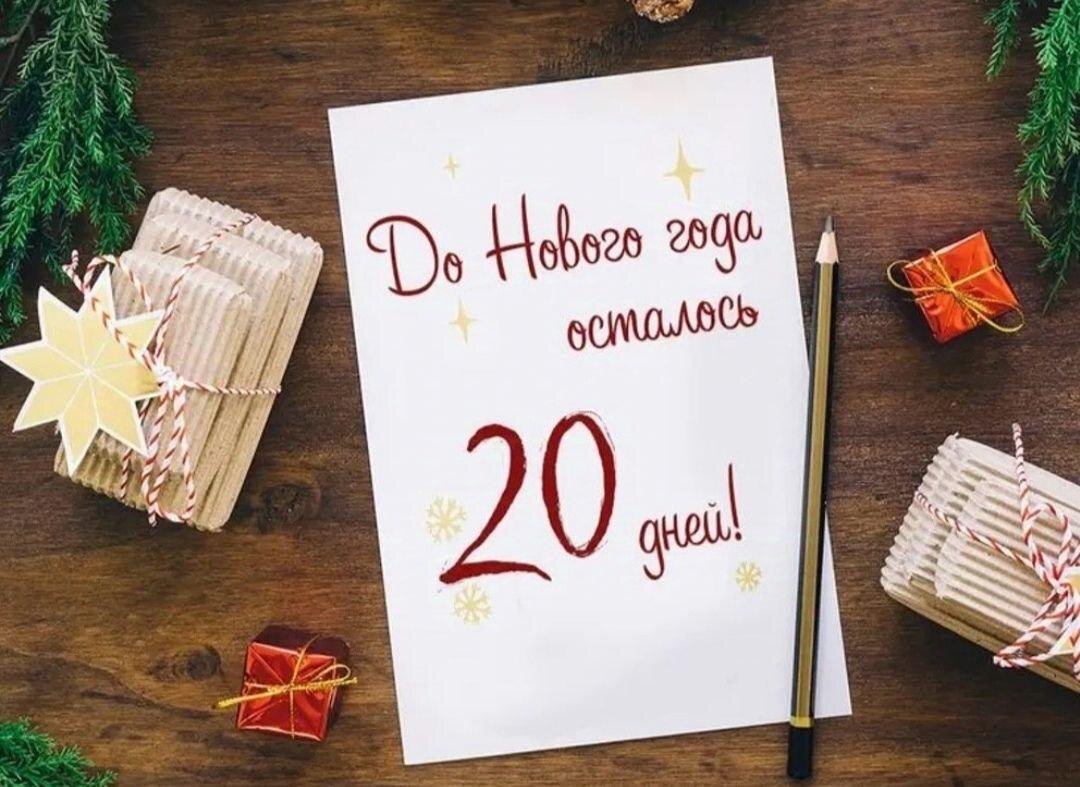 До Нового года
осталось
20 дней!